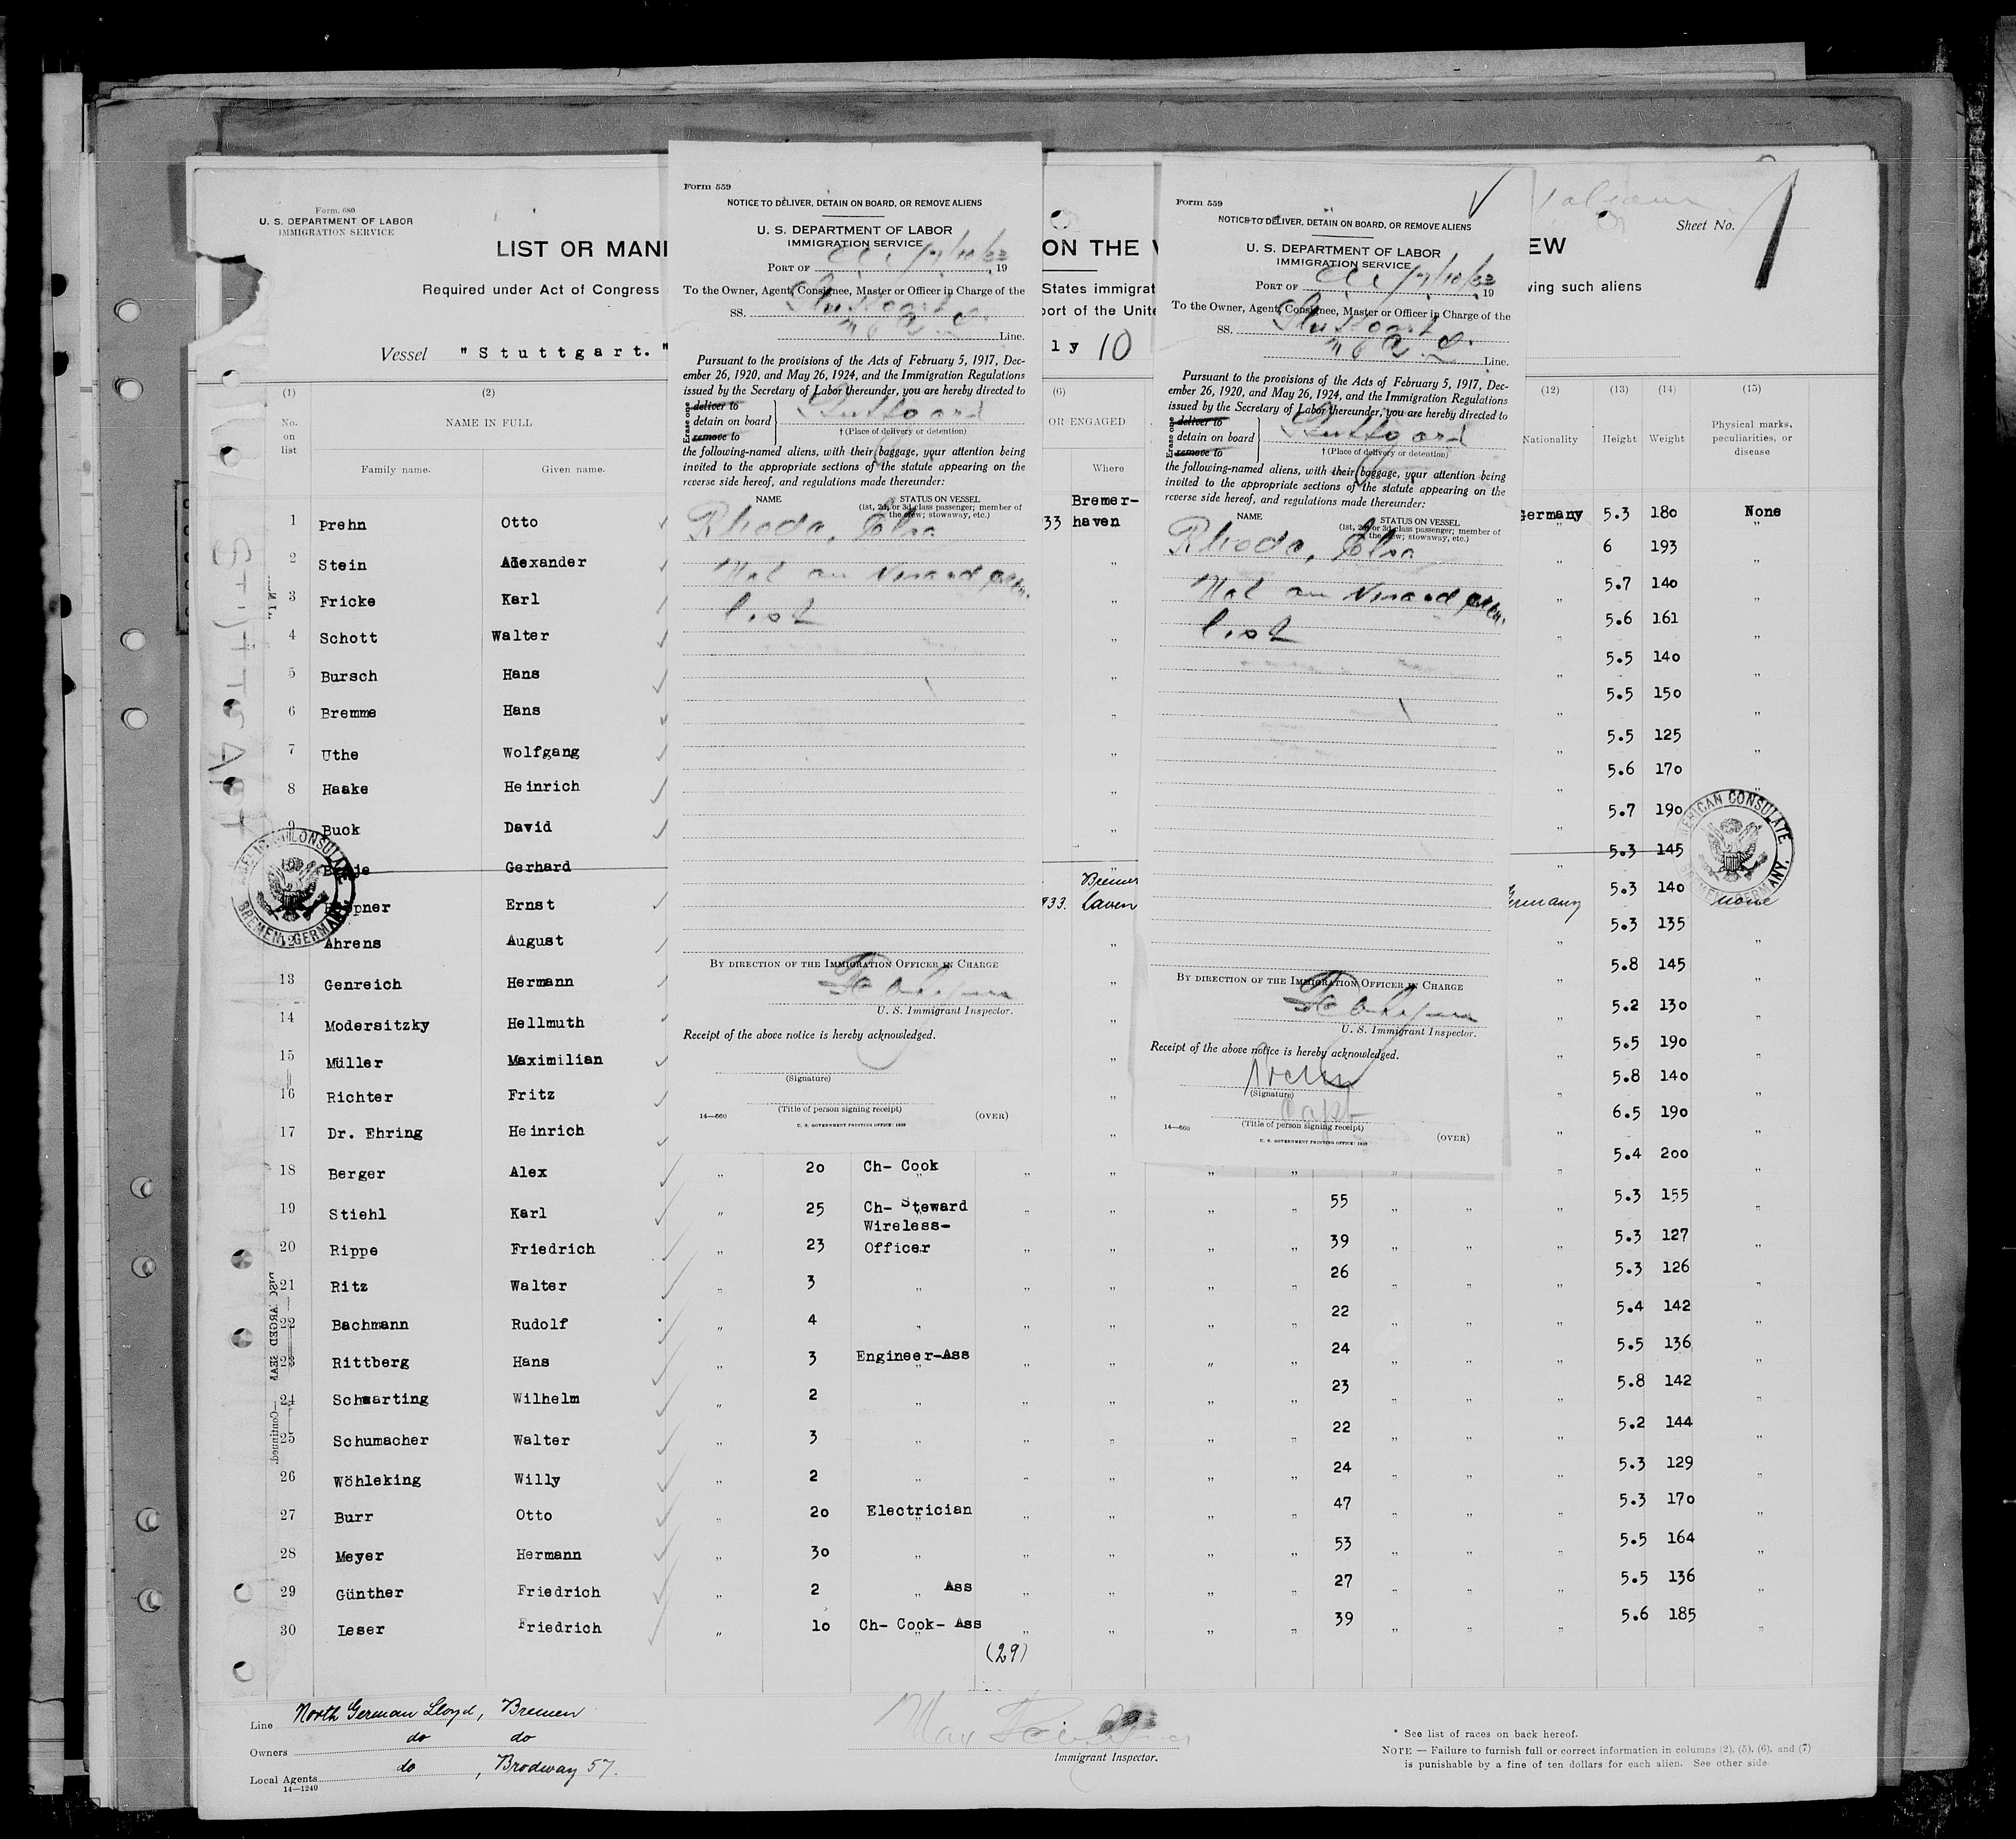 Form. 680
U. S. DEPARTMENT OF LABOR
IMMIGRATION SERVICE
LIST OR MANI
ON THE V
EW
Sheet No. 1
Required under Act of Congress
States immigrat
ving such aliens
port of the Unite
Vessel "Stuttgart."
ly 10
Form 559
NOTICE TO DELIVER, DETAIN ON BOARD, OR REMOVE ALIENS
U. S. DEPARTMENT OF LABOR
IMMIGRATION SERVICE
PORT OF 7/10/33, 19
To the Owner, Agent, Consignee, Master or Officer in Charge of the
SS. Stuttgart
Line.
Pursuant to the provisions of the Acts of February 5, 1917, Dec-
ember 26, 1920, and May 26, 1924, and the Immigration Regulations
issued by the Secretary of Labor thereunder, you are hereby directed to
Erase one
deliver to
detain on board
remove to
Stuttgart
† (Place of delivery or detention)
the following-named aliens, with their baggage, your attention being
invited to the appropriate sections of the statute appearing on the
reverse side hereof, and regulations made thereunder:
NAME
STATUS ON VESSEL
(1st, 2d, or 3d class passenger; member of
the crew; stowaway, etc.)
Rhode, Elsa
Not on visaed crew
list
BY DIRECTION OF THE IMMIGRATION OFFICER IN CHARGE
U. S. Immigrant Inspector.
Receipt of the above notice is hereby acknowledged.
(Signature)
(Title of person signing receipt)
14—660
(OVER)
U. S. GOVERNMENT PRINTING OFFICE:
Form 559
NOTICE TO DELIVER, DETAIN ON BOARD, OR REMOVE ALIENS
U. S. DEPARTMENT OF LABOR
IMMIGRATION SERVICE
PORT OF 7/10/33, 19
To the Owner, Agent, Consignee, Master or Officer in Charge of the
SS. Stuttgart
Line.
Pursuant to the provisions of the Acts of February 5, 1917, Dec-
ember 26, 1920, and May 26, 1924, and the Immigration Regulations
issued by the Secretary of Labor thereunder, you are hereby directed to
Erase one
deliver to
detain on board
remove to
Stuttgart
† (Place of delivery or detention)
the following-named aliens, with their baggage, your attention being
invited to the appropriate sections of the statute appearing on the
reverse side hereof, and regulations made thereunder:
NAME
STATUS ON VESSEL
(1st, 2d, or 3d class passenger; member of
the crew; stowaway, etc.)
Rhode, Elsa
Not on visaed crew
list
BY DIRECTION OF THE IMMIGRATION OFFICER IN CHARGE
U. S. Immigrant Inspector.
Receipt of the above notice is hereby acknowledged.
(Signature)
Capt
(Title of person signing receipt)
14—660
(OVER)
U. S. GOVERNMENT PRINTING OFFICE:
(1) (2) (6) (12) (13) (14) (15)
No. on list
NAME IN FULL
OR ENGAGED
Nationality Height Weight
Physical marks, peculiarities, or disease
Family name. Given name. Where
1 Prehn Otto 33 Bremer-haven Germany 5.3 180 None
2 Stein Alexander " " 6 193 "
3 Fricke Karl " " 5.7 140 "
4 Schott Walter " " 5.6 161 "
5 Bursch Hans " " 5.5 140 "
6 Bremme Hans " 5.5 150 "
7 Uthe Wolfgang " " 5.5 125 "
8 Haake Heinrich " " 5.6 170 "
9 Buck David " " 5.7 190
10 Gerhard " 5.3 145
Ernst 933. Bremerhaven Germany 5.3 140 none
12 Ahrens August " " 5.3 135 "
13 Genreich Hermann " " 5.8 145 "
14 Modersitzky Hellmuth " " 5.2 130 "
15 Müller Maximilian " " 5.5 190 "
16 Richter Fritz " " 5.8 140 "
17 Dr. Ehring Heinrich " " 6.5 190 "
18 Berger Alex " 20 Ch- Cook " " " " " " " 5.4 200 "
19 Stiehl Karl " 25 Ch- Steward " " " " 55 " " " 5.3 155 "
20 Rippe Friedrich " 23 Wireless-Officer " " " " 39 " " " 5.3 127 "
21 Ritz Walter " 3 " " " " " 26 " " " 5.3 126 "
22 Bachmann Rudolf " 4 " " " " " 22 " " " 5.4 142 "
23 Rittberg Hans " 3 Engineer-Ass " " " " 24 " " " 5.5 136 "
24 Schwarting Wilhelm " 2 " " " " " 23 " " " 5.8 142 "
25 Schumacher Walter " 3 " " " " " 22 " " " 5.2 144 "
26 Wöhleking Willy " 2 " " " " " 24 " " " 5.3 129 "
27 Burr Otto " 20 Electrician " " " " 47 " " " 5.3 170 "
28 Meyer Hermann " 30 " " " " " 53 " " " 5.5 164 "
29 Günther Friedrich " 2 " Ass " " " " 27 " " " 5.5 136 "
30 Leser Friedrich " 10 Ch- Cook- Ass " " " " 39 " " " 5.6 185 "
(29)
AMERICAN CONSULATE
BREMEN, GERMANY
AMERICAN CONSULATE
BREMEN, GERMANY.
STUTTGART
—Continued.
Line North German Lloyd, Bremen
Owners do do
Local Agents do, Brodway 57.
14—1240
Max
Immigrant Inspector.
* See list of races on back hereof.
NOTE — Failure to furnish full or correct information in columns (2), (5), (6), and (7)
is punishable by a fine of ten dollars for each alien. See other side.